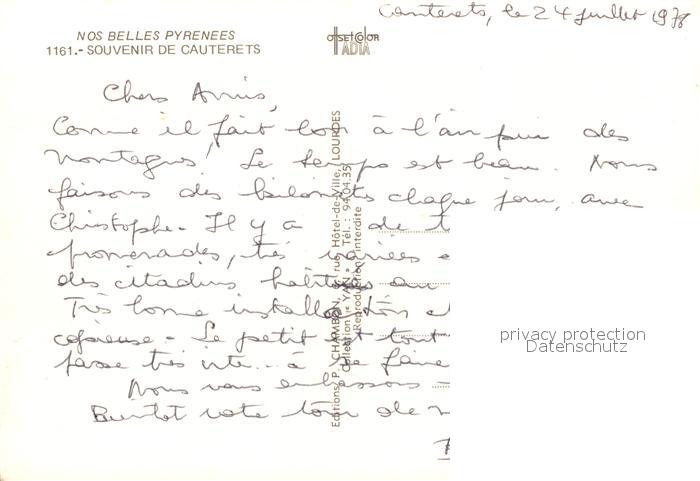 Cauterets, le 24 juillet 1978
NOS BELLES PYRENEES
1161.- SOUVENIR DE CAUTERETS
OFFSET COLOR
ADIA
Chers Amis,
Comme il fait bon à l'air pur des
montagnes! Le temps est beau. Nous
faisons des kilomètres chaque jour, avec
Christophe. Il y a de t
promenades, très variées
des citadins habitués au
Très bonne installation et
copieuse - Le petit est tout
passe très vite.. à se faire
Nous vous embrassons -
Bientôt votre tour de
Editions P. CHAMBON, rue Hôtel-de-Ville, LOURDES
Collection « YAN » Tél. : 94.04.35
Reproduction interdite
privacy protection
Datenschutz